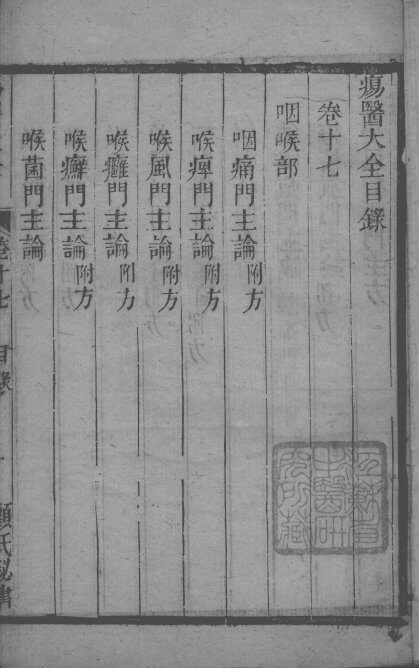 瘍醫大全目錄
卷十七
咽喉部
咽痛門主論附方
喉痺門主論附方
喉風門主論附方
喉癰門主論附方
喉癬門主論附方
喉菌門主論
卷十七 目錄
顧氏秘書